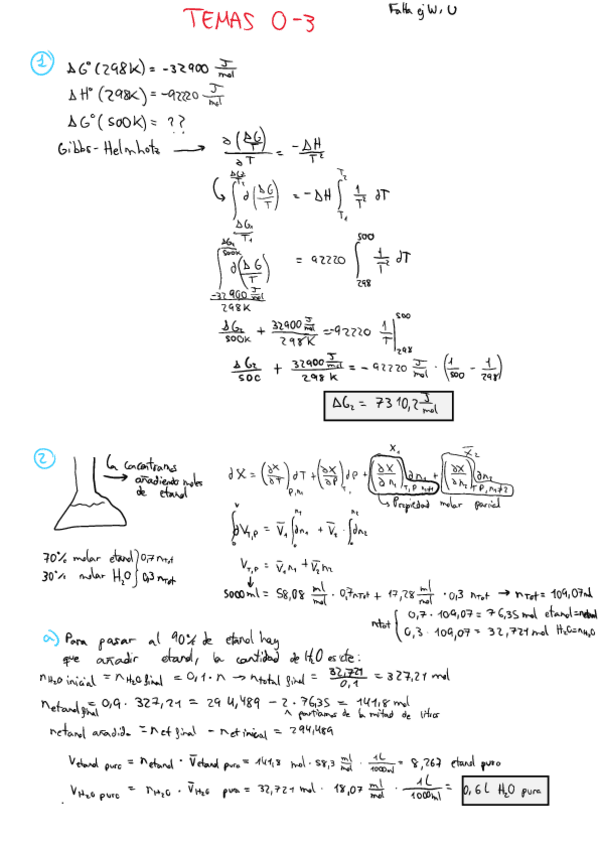 TEMAS 0-3
Falta ej W, U
1
ΔG°(298K) = -32900 J/mol
ΔH°(298K) = -92220 J/mol
ΔG°(500K) = ??
Gibbs-Helmhotz → ∂(ΔG/T)/∂T = -ΔH/T²
∫_{ΔG₁/T₁}^{ΔG₂/T₂} d(ΔG/T) = -ΔH ∫_{T₁}^{T₂} 1/T² dT
∫_{-32900 J/mol / 298K}^{ΔG₂/500K} d(ΔG/T) = 92220 ∫_{298}^{500} 1/T² dT
ΔG₂/500K + 32900 J/mol / 298K = -92220 1/T |_{298}^{500}
ΔG₂/500 + 32900 J/mol / 298K = -92220 J/mol · (1/500 - 1/298)
ΔG₂ = 7310,2 J/mol
2
concentramos
añadiendo moles
de etanol
X̄₁ X̄₂
dX = (∂X/∂T)_{P,n₁} dT + (∂X/∂P)_{T,} dP + (∂X/∂n₁)_{T,P,n≠1} dn₁ + (∂X/∂n₂)_{T,P,n≠2} dn₂
Propiedad molar parcial
∫₀^V dV_{T,P} = V̄₁ ∫^{n₁} dn₁ + V̄₂ · ∫^{n₂} dn₂
V_{T,P} = V̄₁n₁ + V̄₂n₂
70% molar etanol } 0,7 nTot
30% molar H₂O } 0,3 nTot
5000 ml = 58,08 ml/mol · 0,7 nTot + 17,28 ml/mol · 0,3 nTot → nTot = 109,07 mol
ntot { 0,7 · 109,07 = 76,35 mol etanol = netanol
0,3 · 109,07 = 32,721 mol H₂O = nH₂O
a) Para pasar al 90% de etanol hay
que añadir etanol, la cantidad de H₂O es cte:
nH₂O inicial = nH₂O final = 0,1 · n → ntotal final = 32,721/0,1 = 327,21 mol
netanol final = 0,9 · 327,21 = 294,489 - 2 · 76,35 = 141,8 mol
partíamos de la mitad de litros
netanol añadido = net final - net inicial = 294,489
Vetanol puro = netanol · V̄etanol puro = 141,8 mol · 58,3 ml/mol · 1L/1000ml = 8,267 etanol puro
VH₂O puro = nH₂O · V̄H₂O pura = 32,721 mol · 18,07 ml/mol · 1L/1000ml = 0,6 L H₂O pura